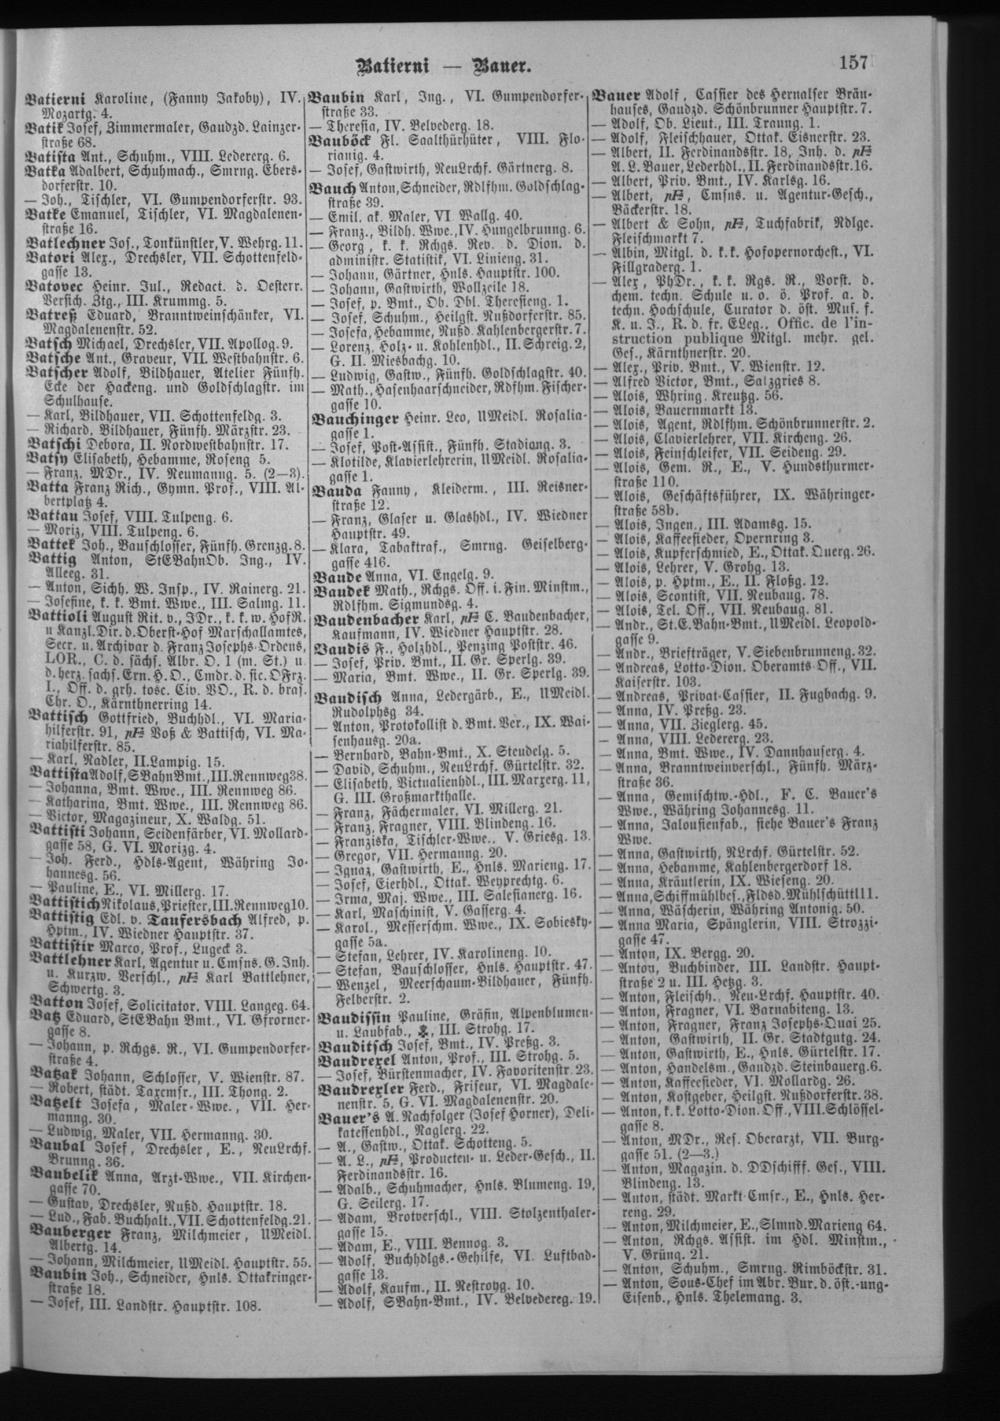 Batierni — Bauer.
157
Batierni Karoline, (Fanny Jakoby), IV.
Mozartg. 4.
Batik Josef, Zimmermaler, Gaudzd. Lainzer-
straße 68.
Batista Ant., Schuhm., VIII. Lederergg. 6.
Batka Adalbert, Schuhmach., Smrng. Ebers-
dorferstr. 10.
— Joh., Tischler, VI. Gumpendorferstr. 93.
Batke Emanuel, Tischler, VI. Magdalenen-
straße 16.
Batlechner Jos., Tonkünstler, V. Wehrg. 11.
Batori Alex., Drechsler, VII. Schottenfeld-
gasse 13.
Batovec Heinr. Jul., Redact. d. Oesterr.
Versich. Ztg., III. Krummg. 5.
Batreß Eduard, Branntweinschänker, VI.
Magdalenenstr. 52.
Batsch Michael, Drechsler, VII. Apollog. 9.
Batsche Ant., Graveur, VII. Westbahnstr. 6.
Batscher Adolf, Bildhauer, Atelier Fünfh.
Ecke der Hackeng. und Goldschlagstr. im
Schulhause.
— Karl, Bildhauer, VII. Schottenfeldg. 3.
— Richard, Bildhauer, Fünfh. Märzstr. 23.
Batschi Debora, II. Nordwestbahnstr. 17.
Batsy Elisabeth, Hebamme, Roseng 5.
— Franz, MDr., IV. Neumanng. 5. (2—3).
Batta Franz Rich., Gymn. Prof., VIII. Al-
bertplatz 4.
Battau Josef, VIII. Tulpeng. 6.
— Moriz, VIII. Tulpeng. 6.
Battek Joh., Bauschlosser, Fünfh. Grenzg. 8.
Battig Anton, StEBahnOb. Ing., IV.
Alleeg. 31.
— Anton, Sichh. W. Insp., IV. Rainerg. 21.
— Josefine, k. k. Bmt. Wwe., III. Salmg. 11.
Battioli August Rit. v., JDr., k. k. w. HofR.
u Kanzl. Dir. d. Oberst-Hof Marschallamtes,
Secr. u. Archivar d. Franz Josephs-Ordens,
LOR., C. d. sächs. Albr. O. 1 (m. St.) u.
d. herz. sachs. Ern. H. O., Cmdr. d. sic. OFrz.
I., Off. d. grh. tosc. Civ. VO., R. d. bras.
Chr. O., Kärnthnerring 14.
Battisch Gottfried, Buchhdl., VI. Maria-
hilferstr. 91, Voß & Battisch, VI. Ma-
riahilferstr. 85.
— Karl, Nadler, II. Lampig. 15.
Battista Adolf, SBahnBmt., III. Rennweg 38.
— Johanna, Bmt. Wwe., III. Rennweg 86.
— Katharina, Bmt. Wwe., III. Rennweg 86.
— Victor, Magazineur, X. Waldg. 51.
Battisti Johann, Seidenfärber, VI. Mollard-
gasse 58, G. VI. Morizg. 4.
— Joh. Ferd., Hdls-Agent, Währing Jo-
hannesg. 56.
— Pauline, E., VI. Millerg. 17.
Battistich Nikolaus, Priester, III. Rennweg 10.
Battistig Edl. v. Taufersbach Alfred, p.
Hptm., IV. Wiedner Hauptstr. 37.
Battistir Marco, Prof., Lugeck 3.
Battlehner Karl, Agentur u. Cmsns. G. Inh.
u. Kurzw. Verschl., Karl Battlehner,
Schwertg. 3.
Batton Josef, Solicitator, VIII. Langeg. 64.
Batz Eduard, StEBahn Bmt., VI. Gfrorner-
gasse 8.
— Johann, p. Rchgs. R., VI. Gumpendorfer-
straße 4.
Batzak Johann, Schlosser, V. Wienstr. 87.
— Robert, städt. Taxcmsr., III. Thong. 2.
Batzelt Josefa, Maler-Wwe., VII. Her-
manng. 30.
— Ludwig, Maler, VII. Hermanng. 30.
Baubal Josef, Drechsler, E., NeuLrchf.
Brunng. 36.
Baubelik Anna, Arzt-Wwe., VII. Kirchen-
gasse 70.
— Gustav, Drechsler, Nußd. Hauptstr. 18.
— Lud., Fab. Buchhalt., VII. Schottenfeldg. 21.
Bauberger Franz, Milchmeier, UMeidl.
Albertg. 14.
— Johann, Milchmeier, UMeidl. Hauptstr. 55.
Baubin Joh., Schneider, Hnls. Ottakringer-
straße 18.
— Josef, III. Landstr. Hauptstr. 108.
Baubin Karl, Ing., VI. Gumpendorfer-
straße 33.
— Theresia, IV. Belvederg. 18.
Bauböck Fl. Saalthürhüter, VIII. Flo-
rianig. 4.
— Josef, Gastwirth, NeuLrchf. Gärtnerg. 8.
Bauch Anton, Schneider, Rdlfhm. Goldschlag-
straße 39.
— Emil, ak. Maler, VI. Wallg. 40.
— Franz., Bildh. Wwe., IV. Hungelbrunng. 6.
— Georg, k. k. Rchgs. Rev. d. Dion. d.
administr. Statistik, VI. Linieng. 31.
— Johann, Gärtner, Hnls. Hauptstr. 100.
— Johann, Gastwirth, Wollzeile 18.
— Josef, p. Bmt., Ob. Dbl. Theresieng. 1.
— Josef, Schuhm., Heilgst. Nußdorferstr. 85.
— Josefa, Hebamme, Nußd. Kahlenbergerstr. 7.
— Lorenz, Holz- u. Kohlenhdl., II. Schreig. 2,
G. II. Miesbachg. 10.
— Ludwig, Gastw., Fünfh. Goldschlagstr. 40.
— Math., Hasenhaarschneider, Rdfhm. Fischer-
gasse 10.
Bauchinger Heinr. Leo, UMeidl. Rosalia-
gasse 1.
— Josef, Post-Assist., Fünfh. Stadiong. 3.
— Klotilde, Klavierlehrerin, UMeidl. Rosalia-
gasse 1.
Bauda Fanny, Kleiderm., III. Reisner-
straße 12.
— Franz, Glaser u. Glashdl., IV. Wiedner
Hauptstr. 49.
— Klara, Tabaktraf., Smrng. Geiselberg-
gasse 416.
Baude Anna, VI. Engelg. 9.
Baudek Math., Rchgs. Off. i. Fin. Minstm.,
Rdlfhm. Sigmundsg. 4.
Baudenbacher Karl, C. Baudenbacher,
Kaufmann, IV. Wiedner Hauptstr. 28.
Baudis F., Holzhdl., Penzing Poststr. 46.
— Josef, Priv. Bmt., II. Gr. Sperlg. 39.
— Maria, Bmt. Wwe., II. Gr. Sperlg. 39.
Baudisch Anna, Ledergärb., E., UMeidl.
Rudolphsg. 34.
— Anton, Protokollist d. Bmt. Ver., IX. Wai-
senhausg. 20a.
— Bernhard, Bahn-Bmt., X. Steudelg. 5.
— David, Schuhm., NeuLrchf. Gürtelstr. 32.
— Elisabeth, Victualienhdl., III. Marxerg. 11,
G. III. Großmarkthalle.
— Franz, Fächermaler, VI. Millerg. 21.
— Franz, Fragner, VIII. Blindeng. 16.
— Franziska, Tischler-Wwe., V. Griesg. 13.
— Gregor, VII. Hermanng. 20.
— Ignaz, Gastwirth, E., Hnls. Marieng. 17.
— Josef, Eierhdl., Ottak. Weyprechtg. 6.
— Irma, Maj. Wwe., III. Salesianerg. 16.
— Karl, Maschinist, V. Gasserg. 4.
— Karol., Messerschm. Wwe., IX. Sobiesky-
gasse 5a.
— Stefan, Lehrer, IV. Karolineng. 10.
— Stefan, Bauschlosser, Hnls. Hauptstr. 47.
— Wenzel, Meerschaum-Bildhauer, Fünfh.
Felberstr. 2.
Baudissin Pauline, Gräfin, Alpenblumen-
u. Laubfab., III. Strohg. 17.
Bauditsch Josef, Bmt., IV. Preßg. 3.
Baudrexel Anton, Prof., III. Strohg. 5.
— Josef, Bürstenmacher, IV. Favoritenstr. 23.
Baudrexler Ferd., Friseur, VI. Magdale-
nenstr. 5, G. VI. Magdalenenstr. 20.
Bauer's A. Nachfolger (Josef Horner), Deli-
katessenhdl., Naglerg. 22.
— A., Gastw., Ottak. Schotteng. 5.
— A. L., Producten- u. Leder-Gesch., II.
Ferdinandsstr. 16.
— Adalb., Schuhmacher, Hnls. Blumeng. 19,
G. Seilerg. 17.
— Adam, Brotverschl., VIII. Stolzenthaler-
gasse 15.
— Adam, E., VIII. Bennog. 3.
— Adolf, Buchhdlgs.-Gehilfe, VI. Luftbad-
gasse 13.
— Adolf, Kaufm., II. Nestroyg. 10.
— Adolf, SBahn-Bmt., IV. Belvedereg. 19.
Bauer Adolf, Cassier des Hernalser Bräu-
hauses, Gaudzd. Schönbrunner Hauptstr. 7.
— Adolf, Ob. Lieut., III. Traung. 1.
— Adolf, Fleischhauer, Ottak. Eisnerstr. 23.
— Albert, II. Ferdinandsstr. 18, Inh. d.
A. L. Bauer, Lederhdl., II. Ferdinandsstr. 16.
— Albert, Priv. Bmt., IV. Karlsg. 16.
— Albert, Cmsns. u. Agentur-Gesch.,
Bäckerstr. 18.
— Albert & Sohn, Tuchfabrik, Ndlge.
Fleischmarkt 7.
— Albin, Mitgl. d. k. k. Hofopernorchest., VI.
Fillgraderg. 1.
— Alex, PhDr., k. k. Rgs. R., Vorst. d.
chem. techn. Schule u. o. ö. Prof. a. d.
techn. Hochschule, Curator d. öst. Mus. f.
K. u. J., R. d. fr. ELeg., Offic. de l'in-
struction publique Mitgl. mehr. gel.
Ges., Kärnthnerstr. 20.
— Alex., Priv. Bmt., V. Wienstr. 12.
— Alfred Victor, Bmt., Salzgries 8.
— Alois, Whring. Kreutzg. 56.
— Alois, Bauernmarkt 13.
— Alois, Agent, Rdlfhm. Schönbrunnerstr. 2.
— Alois, Clavierlehrer, VII. Kircheng. 26.
— Alois, Feinschleifer, VII. Seideng. 29.
— Alois, Gem. R., E., V. Hundsthurmer-
straße 110.
— Alois, Geschäftsführer, IX. Währinger-
straße 58b.
— Alois, Ingen., III. Adamsg. 15.
— Alois, Kaffeesieder, Opernring 3.
— Alois, Kupferschmied, E., Ottak. Querg. 26.
— Alois, Lehrer, V. Grohg. 13.
— Alois, p. Hptm., E., II. Floßg. 12.
— Alois, Scontist, VII. Neubaug. 78.
— Alois, Tel. Off., VII. Neubaug. 81.
— Andr., St. E. Bahn-Bmt., UMeidl. Leopold-
gasse 9.
— Andr., Briefträger, V. Siebenbrunneng. 32.
— Andreas, Lotto-Dion. Oberamts-Off., VII.
Kaiserstr. 103.
— Andreas, Privat-Cassier, II. Fugbachg. 9.
— Anna, IV. Preßg. 23.
— Anna, VII. Zieglerg. 45.
— Anna, VIII. Ledererg. 23.
— Anna, Bmt. Wwe., IV. Dannhauserg. 4.
— Anna, Branntweinverschl., Fünfh. März-
straße 36.
— Anna, Gemischtw.-Hdl., F. C. Bauer's
Wwe., Währing Johannesg. 11.
— Anna, Jalousienfab., siehe Bauer's Franz
Wwe.
— Anna, Gastwirth, NLrchf. Gürtelstr. 52.
— Anna, Hebamme, Kahlenbergerdorf 18.
— Anna, Kräutlerin, IX. Wieseng. 20.
— Anna, Schiffmühlbes., Fldsd. Mühlschüttl 11.
— Anna, Wäscherin, Währing Antonig. 50.
— Anna Maria, Spänglerin, VIII. Strozzi-
gasse 47.
— Anton, IX. Bergg. 20.
— Anton, Buchbinder, III. Landstr. Haupt-
straße 2 u. III. Hetzg. 3.
— Anton, Fleischh., Neu-Lrchf. Hauptstr. 40.
— Anton, Fragner, VI. Barnabiteng. 13.
— Anton, Fragner, Franz Josephs-Quai 25.
— Anton, Gastwirth, II. Gr. Stadtgutg. 24.
— Anton, Gastwirth, E., Hnls. Gürtelstr. 17.
— Anton, Handelsm., Gaudzd. Steinbauerg. 6.
— Anton, Kaffeesieder, VI. Mollardg. 26.
— Anton, Kostgeber, Heilgst. Nußdorferstr. 38.
— Anton, k. k. Lotto-Dion. Off., VIII. Schlössel-
gasse 8.
— Anton, MDr., Ref. Oberarzt, VII. Burg-
gasse 51. (2—3.)
— Anton, Magazin. d. DDschifff. Ges., VIII.
Blindeng. 13.
— Anton, städt. Markt-Cmsr., E., Hnls. Her-
reng. 29.
— Anton, Milchmeier, E., Slmnd. Marieng 64.
— Anton, Rchgs. Assist. im Hdl. Minstm.,
V. Grüng. 21.
— Anton, Schuhm., Smrng. Rimböckstr. 31.
— Anton, Sous-Chef im Abr. Bur. d. öst.-ung-
Eisenb., Hnls. Thelemang. 3.